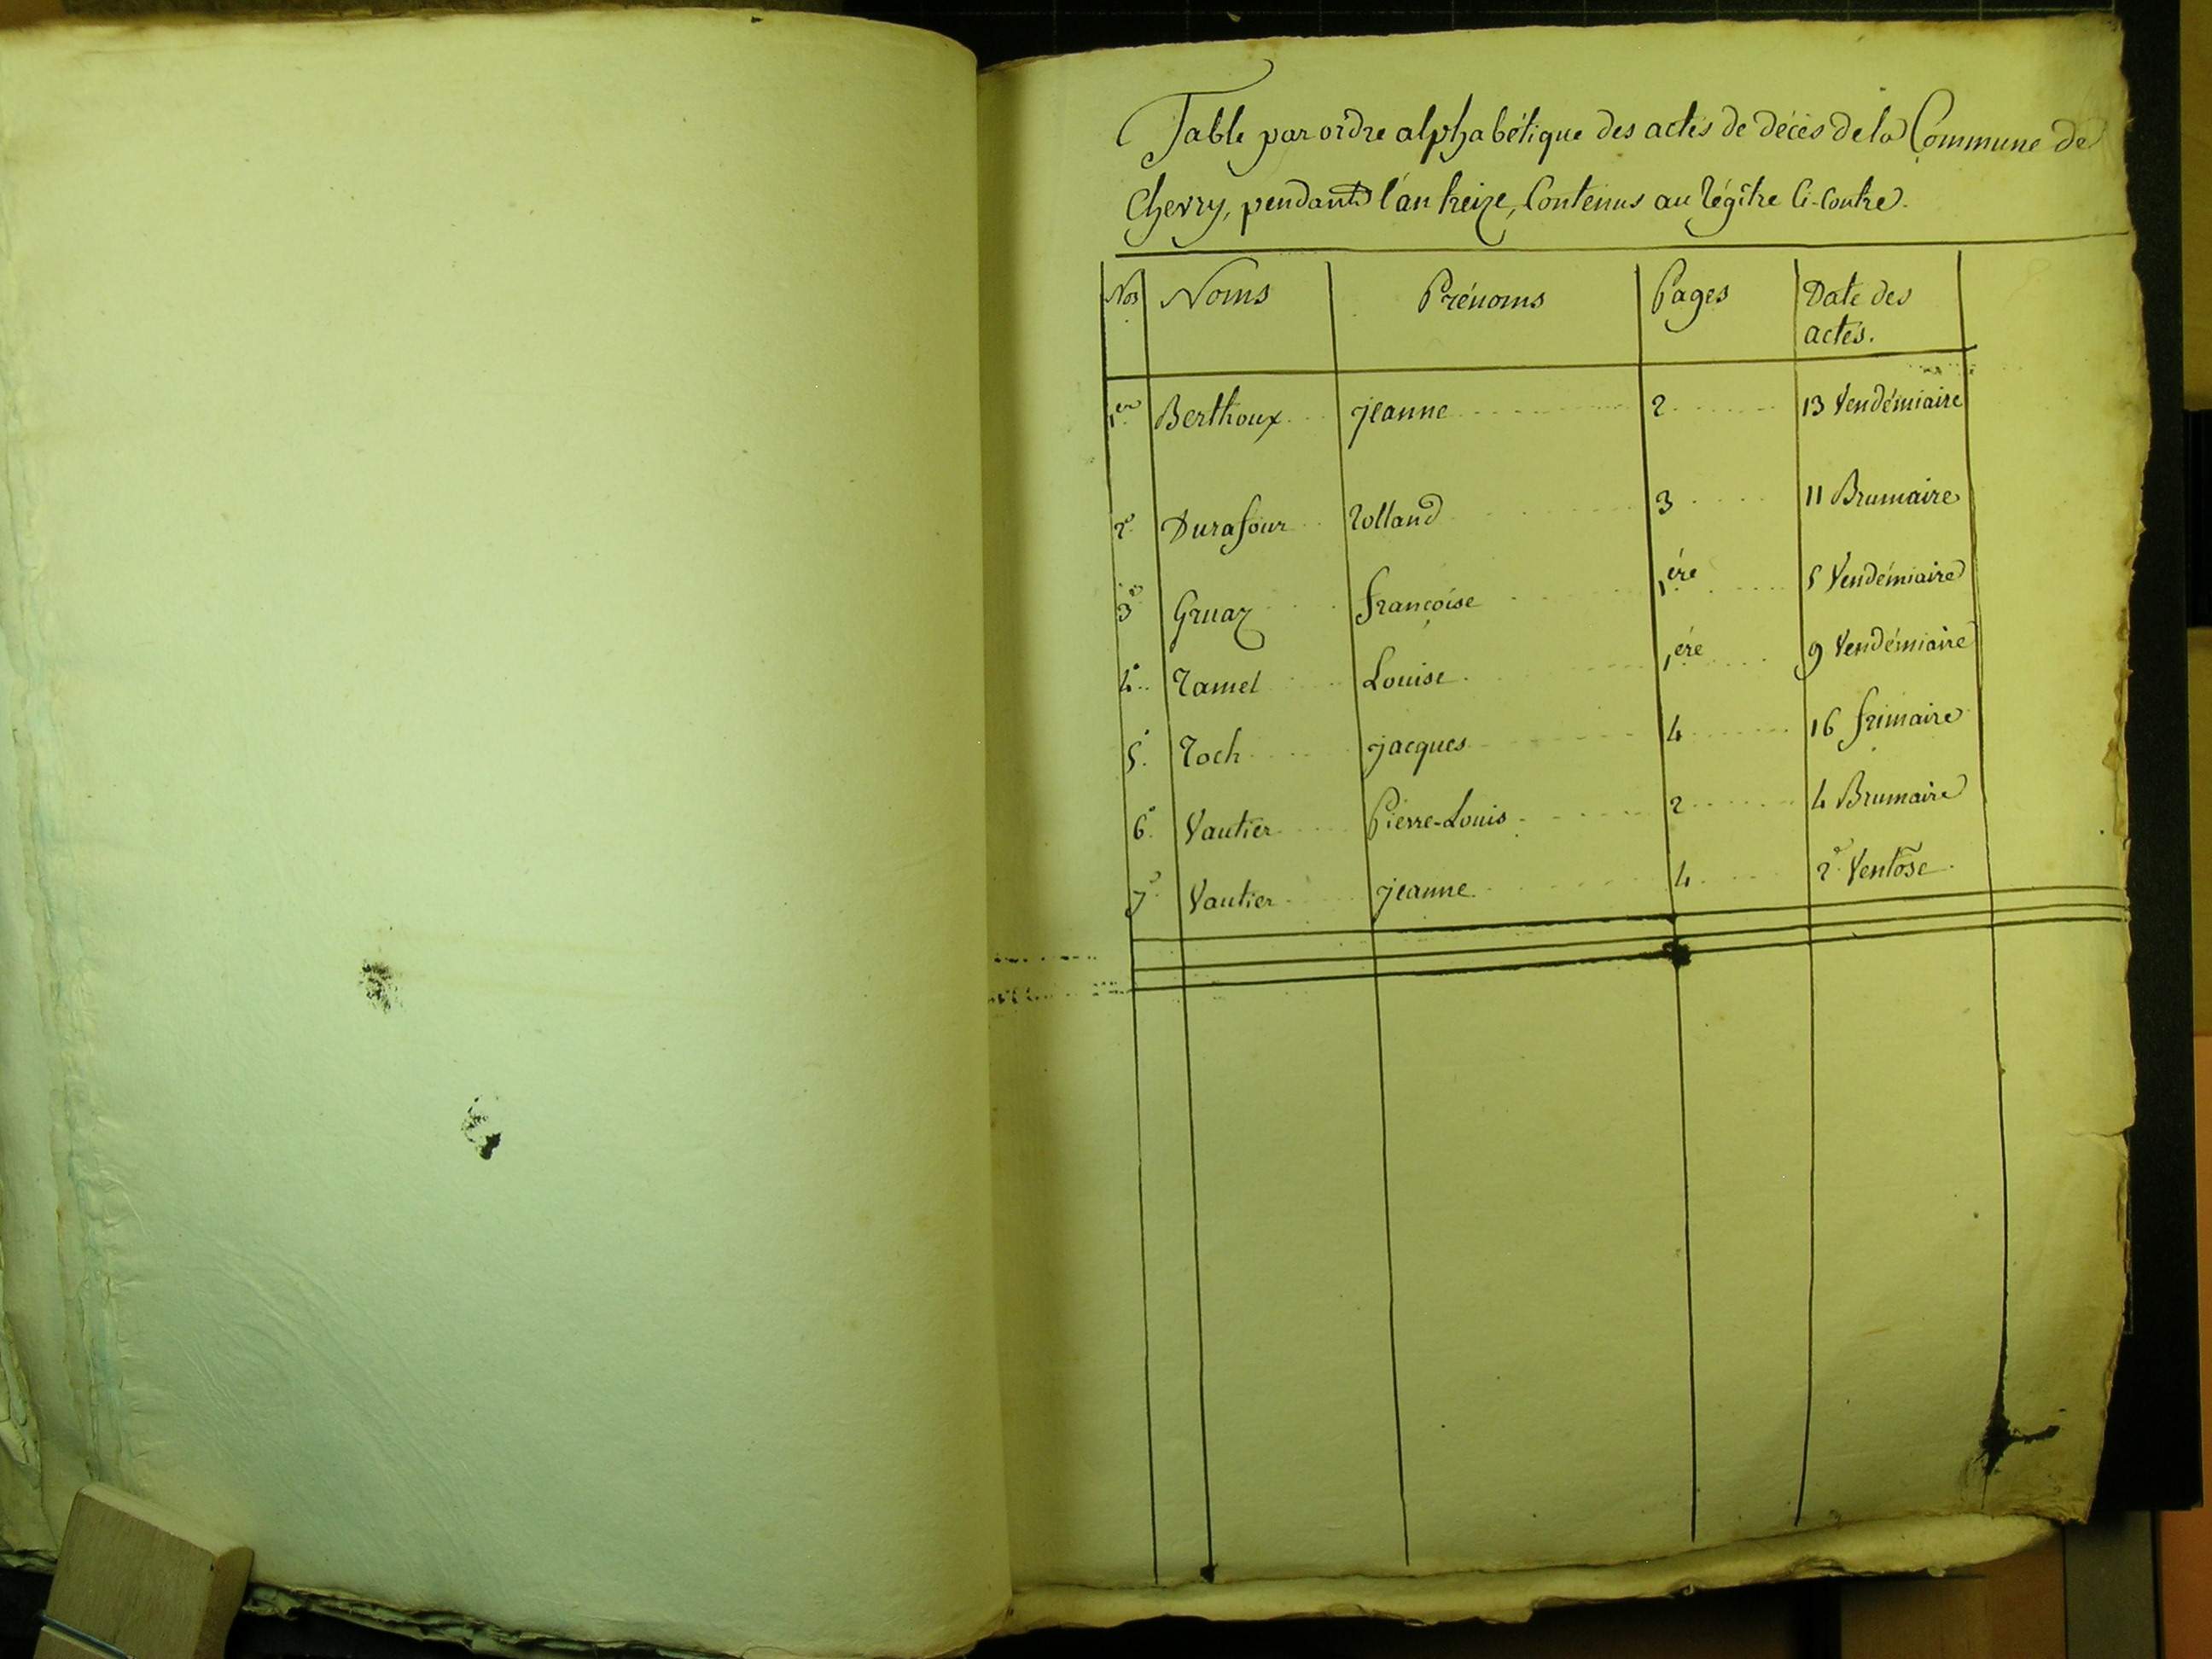 Table par ordre alphabétique des actes de décès de la Commune de
Chevry, pendant l'an treize, Contenus au régître Ci-Contre.
Nos Noms Prénoms Pages Date des
actes.
1er Berthoux jeanne 2 13 Vendémiaire
2e Durafour rolland 3 11 Brumaire
3e Gruaz françoise 1ére 5 Vendémiaire
4e ramel Louise 1ére 9 Vendémiaire
5e roch jacques 4 16 frimaire
6e Vautier Pierre-Louis 2 4 Brumaire
7e Vautier jeanne 4 2e Ventôse